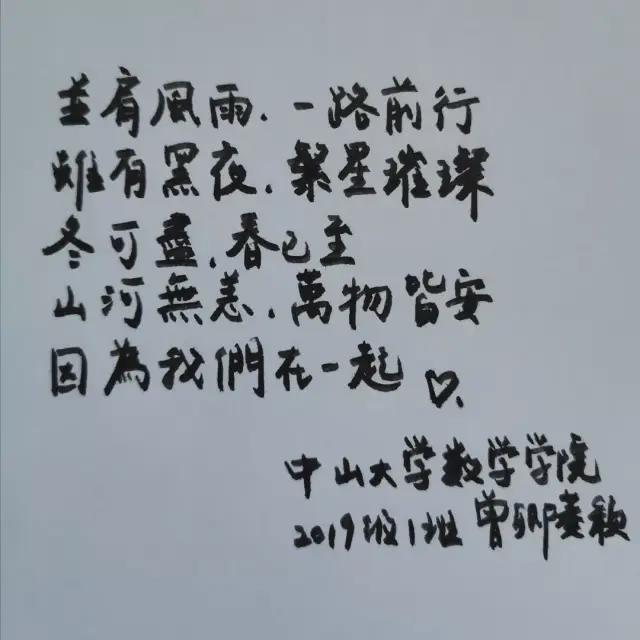 並肩風雨.一路前行
雖有黑夜.繁星璀璨
冬可盡.春已至
山河無恙.萬物皆安
因為我們在一起♡.
中山大学数学学院
2019 1班 曾